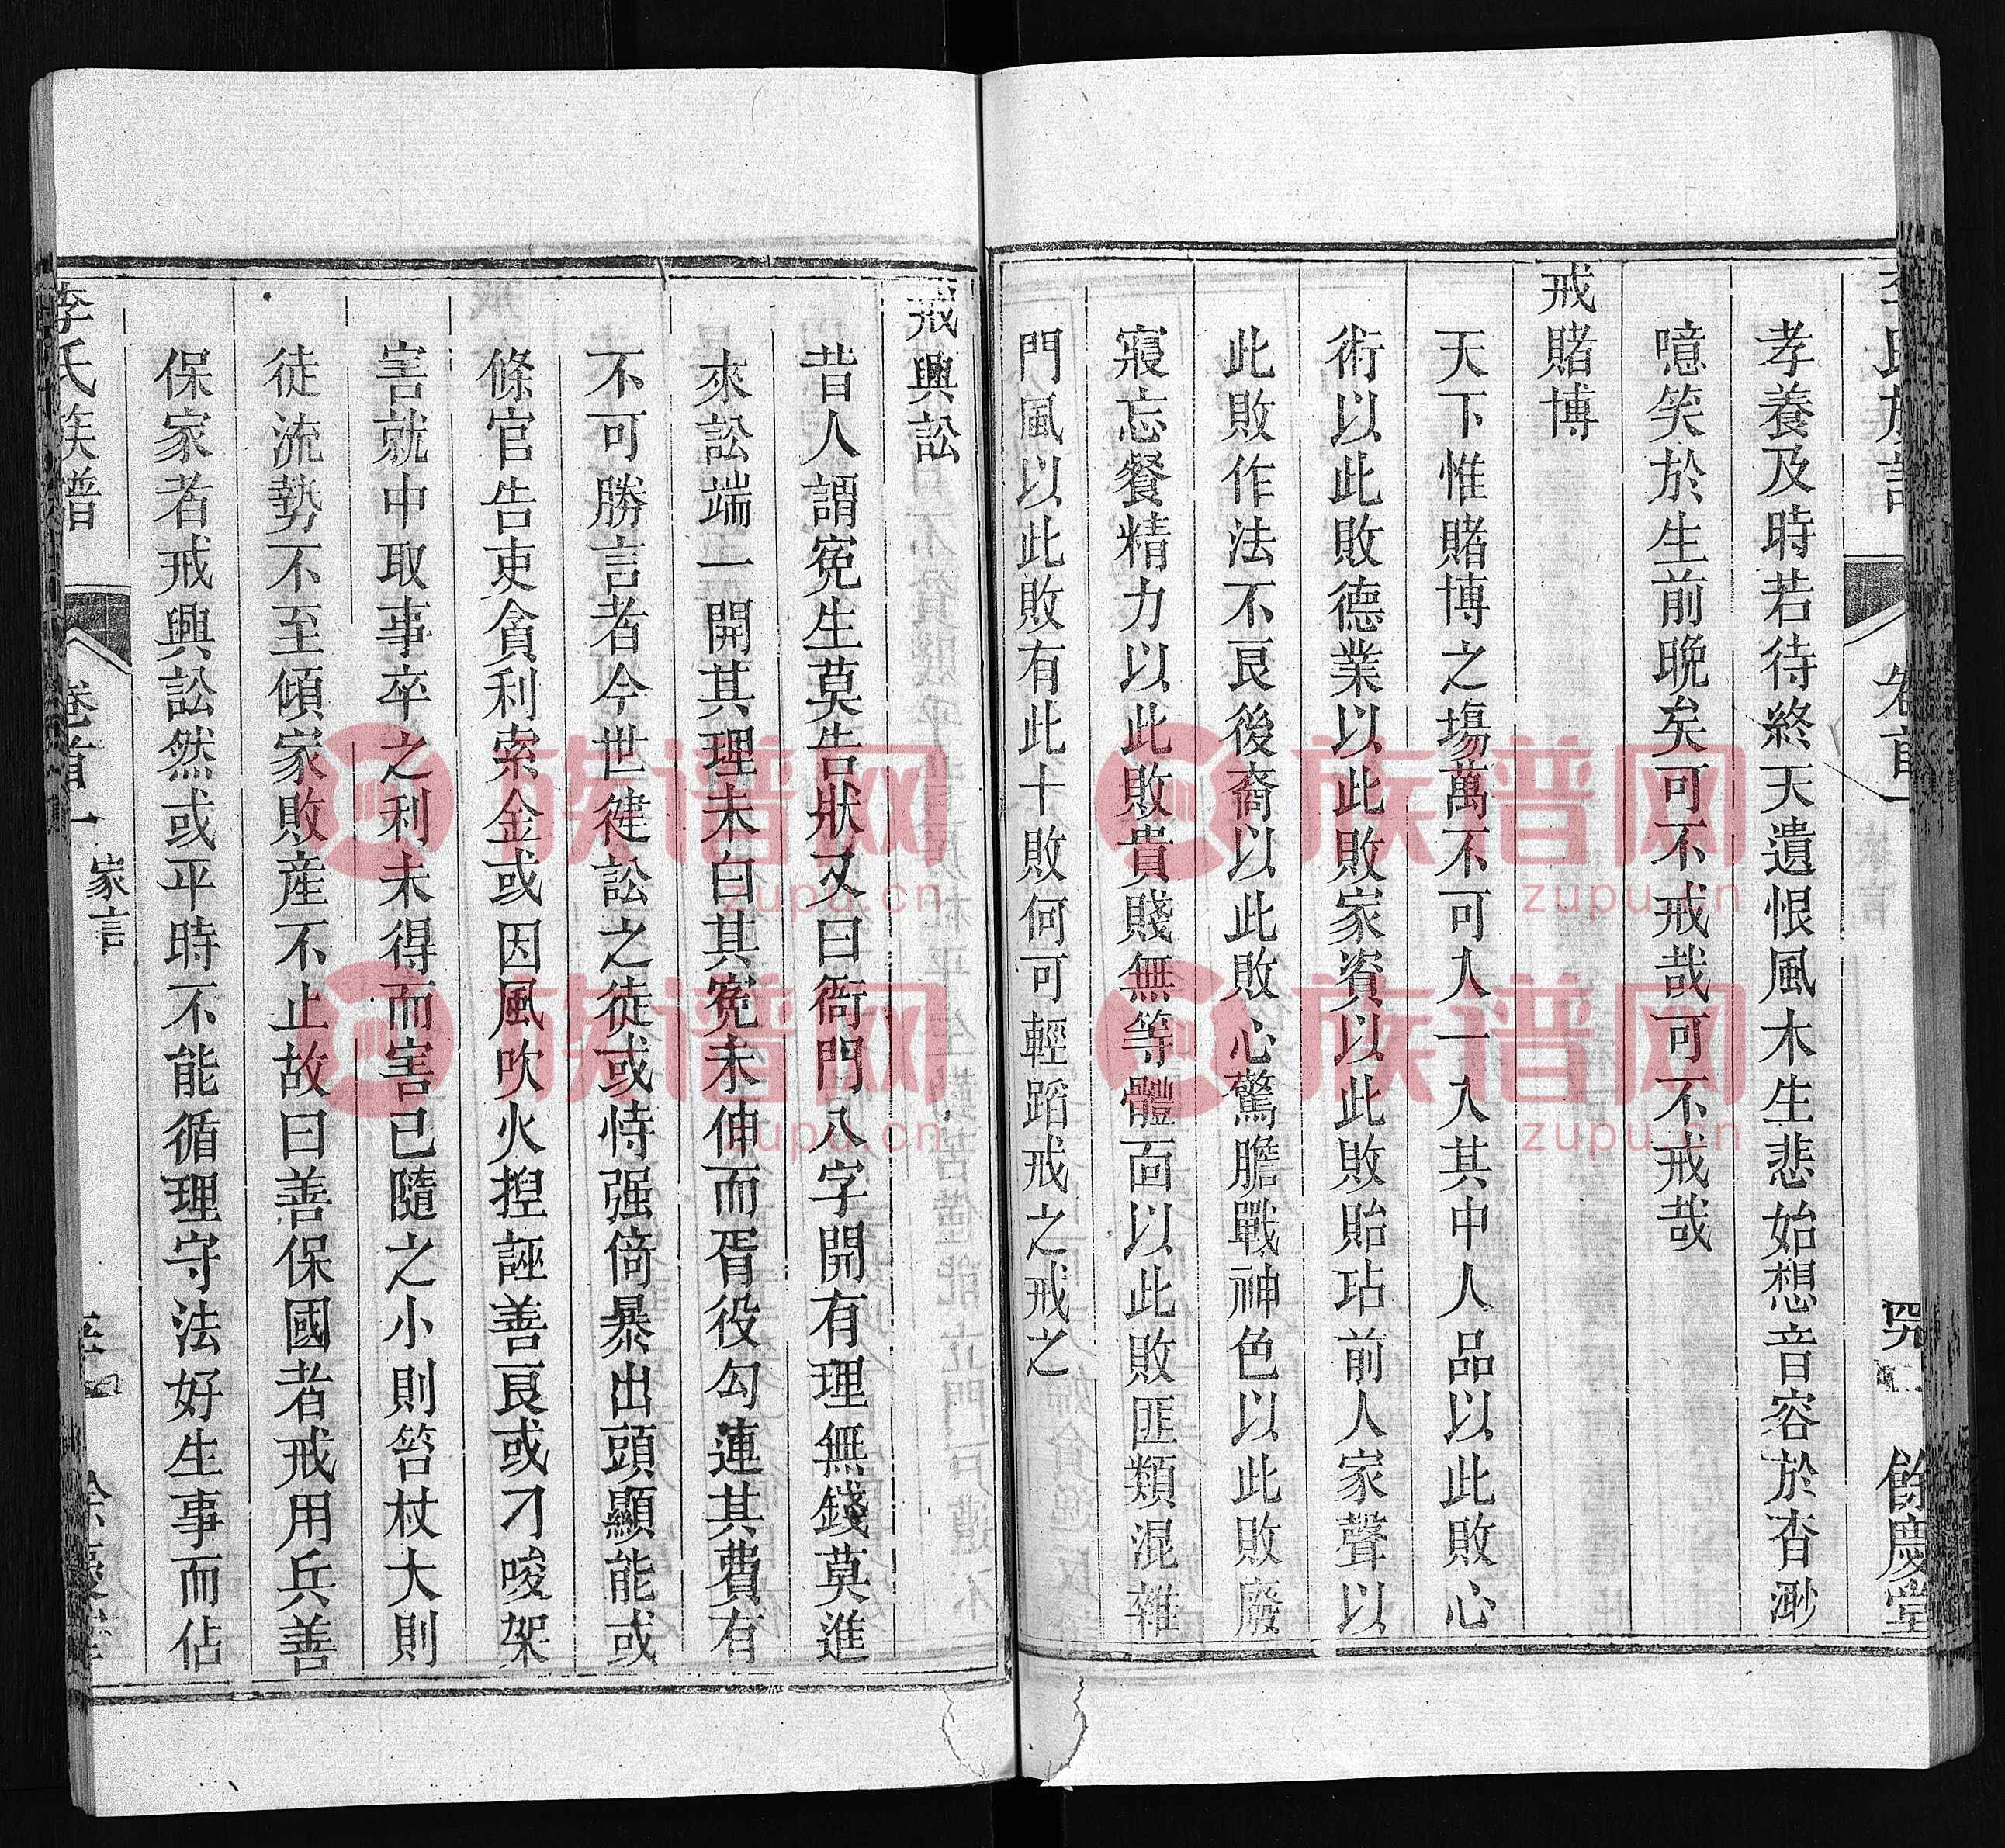 李氏族譜 卷首一 家言 四九 餘慶堂
孝養及時若待終天遺恨風木生悲始想音容於杳渺
噫笑於生前晩矣可不戒哉可不戒哉
戒賭博
天下惟賭博之場萬不可入一入其中人品以此敗心
術以此敗德業以此敗家資以此敗貽玷前人家聲以
此敗作法不良後裔以此敗心驚膽戰神色以此敗廢
寢忘餐精力以此敗貴賤無等體面以此敗匪類混雜
門風以此敗有此十敗何可輕蹈戒之戒之
戒興訟
昔人謂寃生莫告狀又曰衙門八字開有理無錢莫進
來訟端一開其理未白其寃未伸而胥役勾連其費有
不可勝言者今世健訟之徒或恃强倚暴出頭顯能或
條官告吏貪利索金或因風吹火揑誣善良或刁唆架
害就中取事卒之利未得而害已隨之小則笞杖大則
徒流勢不至傾家敗産不止故曰善保國者戒用兵善
保家者戒興訟然或平時不能循理守法好生事而佔
李氏族譜 卷首一 家言
族谱网
zupu.cn
族谱网
zupu.cn
族谱网
zupu.cn
族谱网
zupu.cn